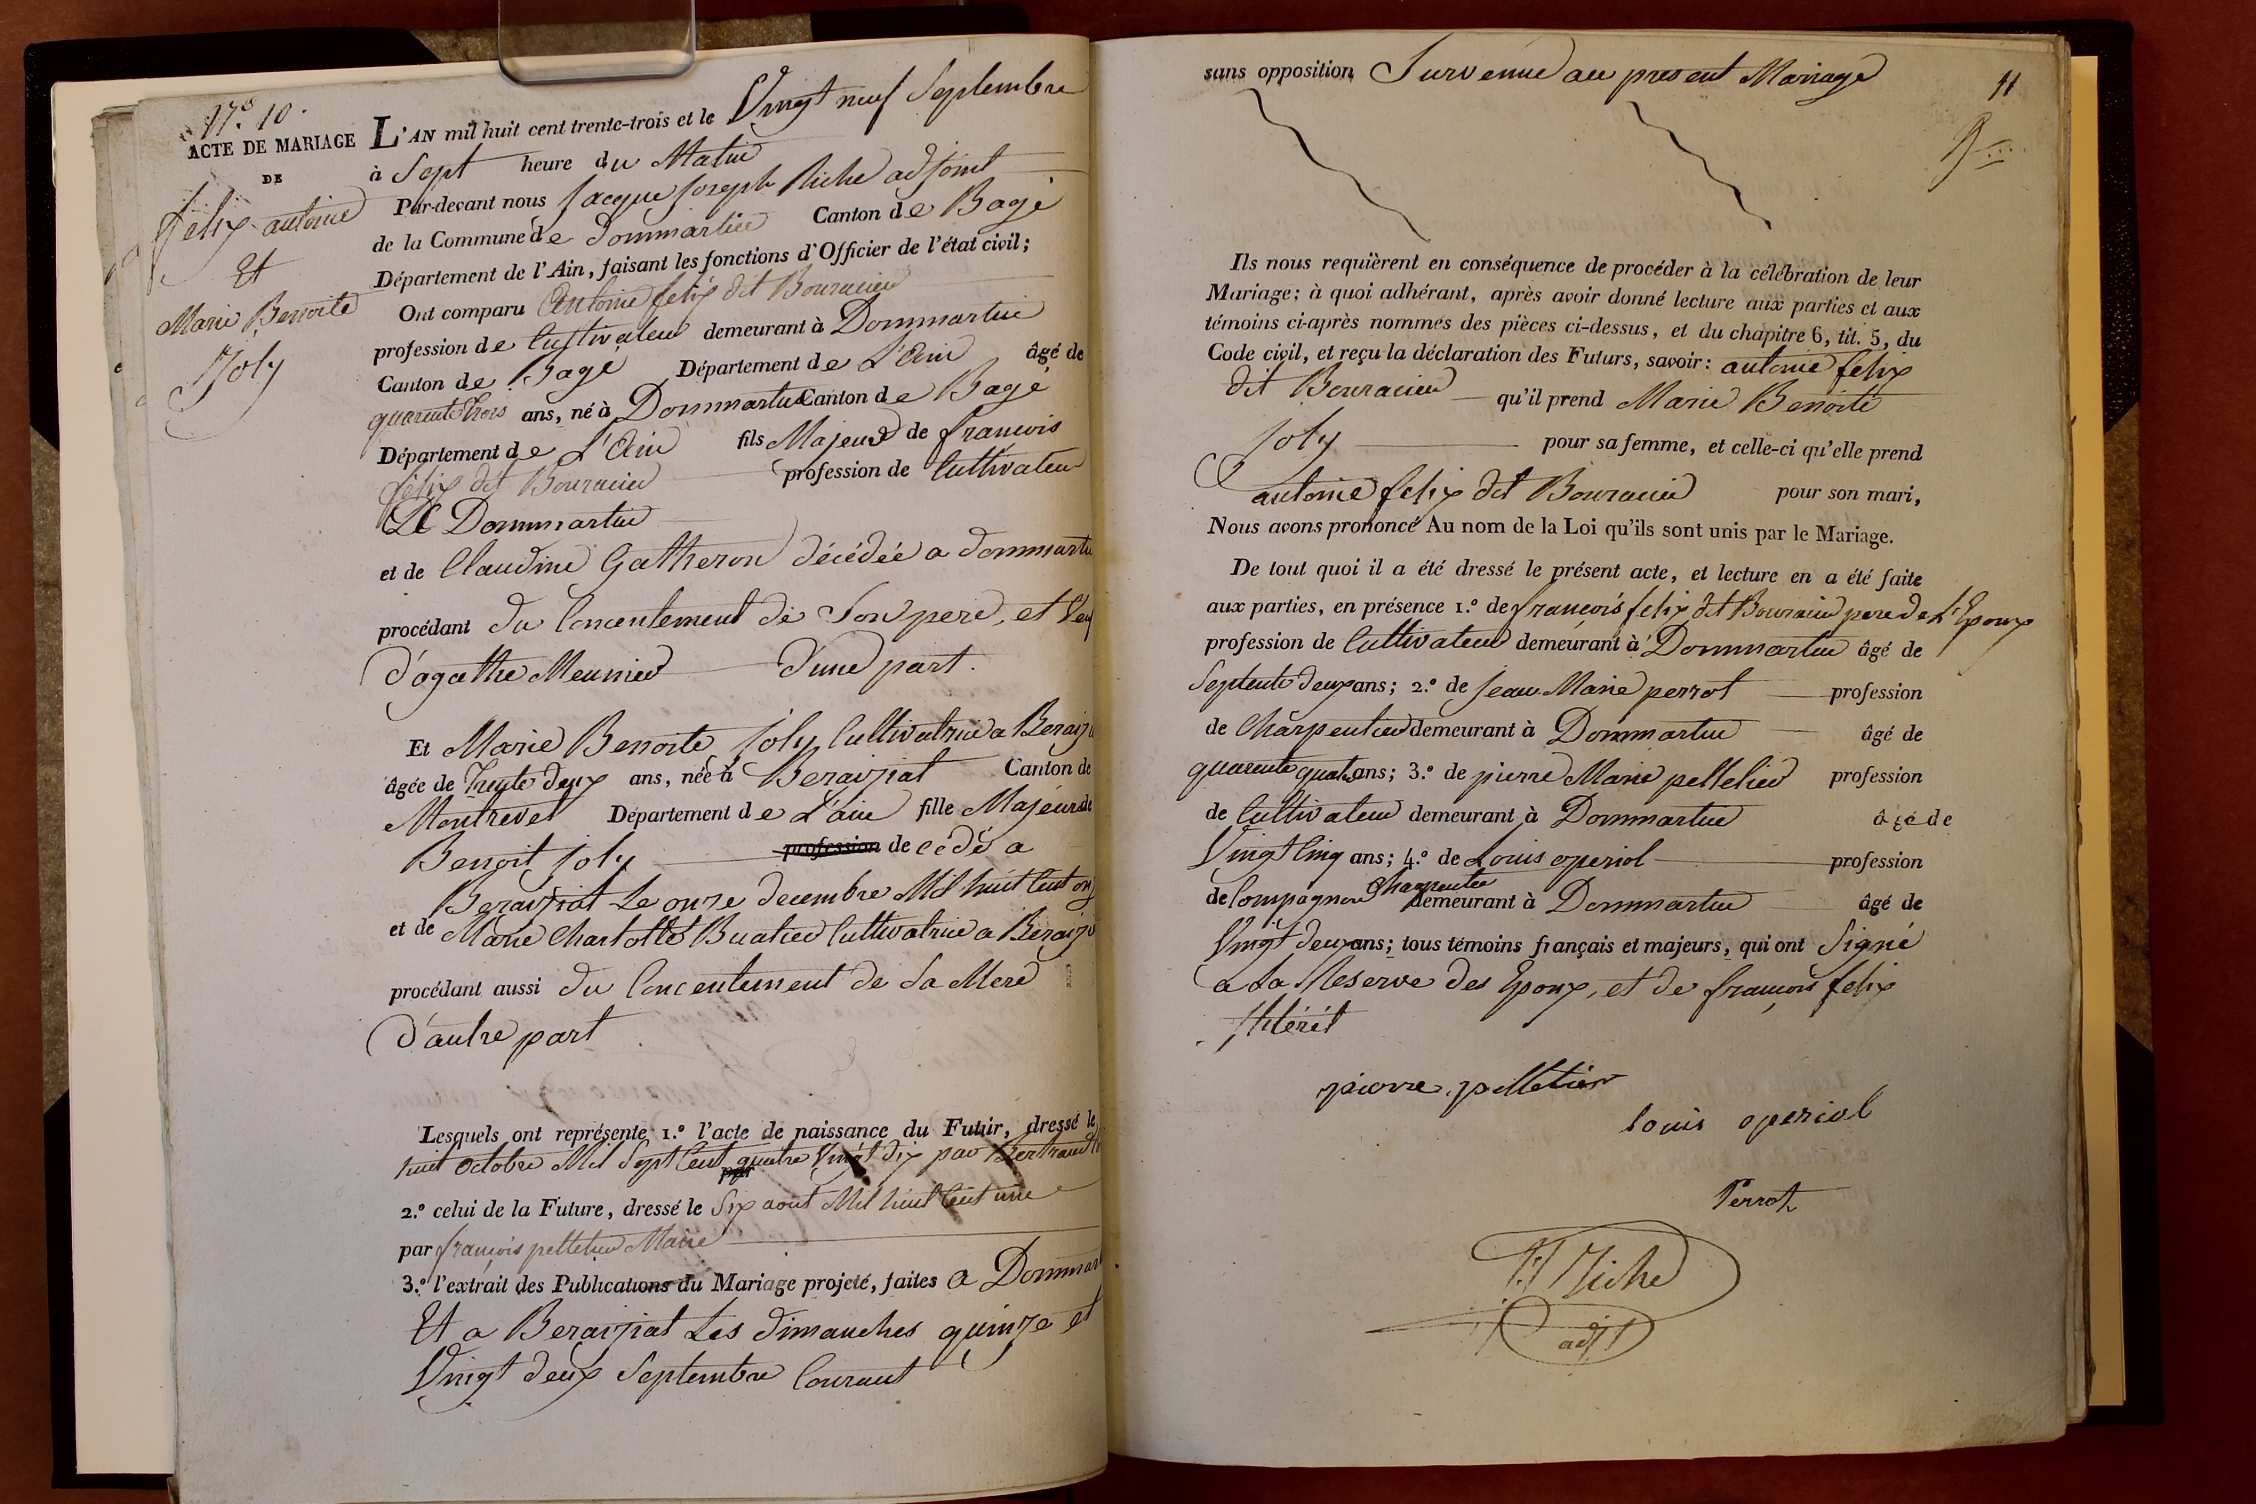 N.o 10.
ACTE DE MARIAGE
DE
felix antoine
Et
Marie Benoite
Joly
L'AN mil huit cent trente-trois et le Vingt neuf Septembre
à Sept heure du Matin
Par-devant nous Jacque Joseph Riche adjoint
de la Commune de Dommartin Canton de Bagé
Département de l'Ain, faisant les fonctions d'Officier de l'état civil;
Ont comparu Antoine felix dit Bouracier
profession de Cultivateur demeurant à Dommartin
Canton de Bagé Département de L'Ain âgé de
quarente trois ans, né à Dommartin Canton de Bagé
Département de L'Ain fils Majeur de francois
félix dit Bouracier profession de Cultivateur
A Dommartin
et de Claudine Gatheron décédée a dommartin
procédant du Concentement de Son pere, et Veuf
d'agathe Meunier d'une part.
Et Marie Benoite Joly Cultivatrice a Beraizi
âgée de Trente deux ans, née à Beraiziat Canton de
Montrevel Département de L'ain fille Majeure de
Benoit Joly profession de cédé a
Beraiziat Le onze decembre Mil huit Cent onz
et de Marie Charlotte Buatier Cultivatrice a Beraizi
procédant aussi du Concentement de Sa Mere
d'autre part
Lesquels ont représenté 1.º l'acte de naissance du Futur, dressé le
huit octobre Mil Sept Cent quatre Vingt dix par Bertrand
par
2.º celui de la Future, dressé le Six aout Mil huit Cent une
par françois pelletier Maire
3.º l'extrait des Publications du Mariage projeté, faites a Dommar
Et a Beraiziat Les dimanches quinze et
Vingt deux Septembre Courant
sans opposition Survenue au present Mariage
11
Ils nous requièrent en conséquence de procéder à la célébration de leur
Mariage; à quoi adhérant, après avoir donné lecture aux parties et aux
témoins ci-après nommés des pièces ci-dessus, et du chapitre 6, tit. 5, du
Code civil, et reçu la déclaration des Futurs, savoir: antoine felix
dit Bouracier qu'il prend Marie Benoite
Joly pour sa femme, et celle-ci qu'elle prend
antoine felix dit Bouracier pour son mari,
Nous avons prononcé Au nom de la Loi qu'ils sont unis par le Mariage.
De tout quoi il a été dressé le présent acte, et lecture en a été faite
aux parties, en présence 1.º de françois felix dit Bouracier pere de L'Epoux
profession de Cultivateur demeurant à Dommartin âgé de
Septente deux ans; 2.º de Jean Marie perrot profession
de Charpentier demeurant à Dommartin âgé de
quarente quatre ans; 3.º de pierre Marie pelletier profession
de Cultivateur demeurant à Dommartin âgé de
Vingt Cinq ans; 4.º de Louis operiol profession
de Compagnon Charpentier demeurant à Dommartin âgé de
Vingt deux ans; tous témoins français et majeurs, qui ont Signé
a La Reserve des Epoux, et de françois felix
Illéré
pierre pelletier
louis operiol
Perrot
Riche
adjt